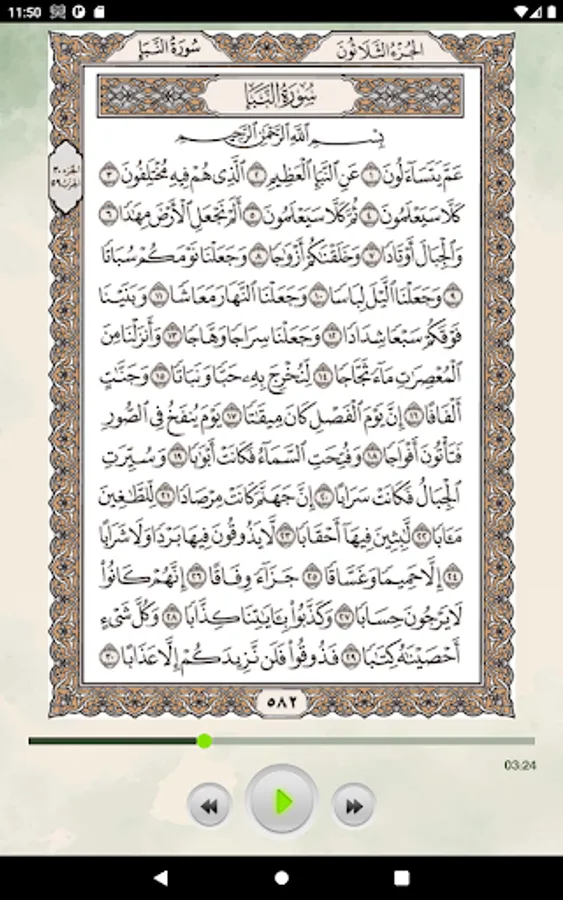 11:50
سُورَةُ النَّبَإِ
الجُزْءُ الثَّلَاثُونَ
سُورَةُ النَّبَإِ
بِسْمِ اللَّهِ الرَّحْمَٰنِ الرَّحِيمِ
عَمَّ يَتَسَاءَلُونَ ١ عَنِ النَّبَإِ الْعَظِيمِ ٢ الَّذِي هُمْ فِيهِ مُخْتَلِفُونَ ٣
كَلَّا سَيَعْلَمُونَ ٤ ثُمَّ كَلَّا سَيَعْلَمُونَ ٥ أَلَمْ نَجْعَلِ الْأَرْضَ مِهَٰدًا ٦
وَالْجِبَالَ أَوْتَادًا ٧ وَخَلَقْنَٰكُمْ أَزْوَٰجًا ٨ وَجَعَلْنَا نَوْمَكُمْ سُبَاتًا
٩ وَجَعَلْنَا الَّيْلَ لِبَاسًا ١٠ وَجَعَلْنَا النَّهَارَ مَعَاشًا ١١ وَبَنَيْنَا
فَوْقَكُمْ سَبْعًا شِدَادًا ١٢ وَجَعَلْنَا سِرَاجًا وَهَّاجًا ١٣ وَأَنزَلْنَا مِنَ
الْمُعْصِرَٰتِ مَاءً ثَجَّاجًا ١٤ لِّنُخْرِجَ بِهِۦ حَبًّا وَنَبَاتًا ١٥ وَجَنَّٰتٍ
أَلْفَافًا ١٦ إِنَّ يَوْمَ الْفَصْلِ كَانَ مِيقَٰتًا ١٧ يَوْمَ يُنفَخُ فِي الصُّورِ
فَتَأْتُونَ أَفْوَاجًا ١٨ وَفُتِحَتِ السَّمَاءُ فَكَانَتْ أَبْوَٰبًا ١٩ وَسُيِّرَتِ
الْجِبَالُ فَكَانَتْ سَرَابًا ٢٠ إِنَّ جَهَنَّمَ كَانَتْ مِرْصَادًا ٢١ لِّلطَّٰغِينَ
مَـَٔابًا ٢٢ لَّٰبِثِينَ فِيهَا أَحْقَابًا ٢٣ لَّا يَذُوقُونَ فِيهَا بَرْدًا وَلَا شَرَابًا
٢٤ إِلَّا حَمِيمًا وَغَسَّاقًا ٢٥ جَزَاءً وِفَاقًا ٢٦ إِنَّهُمْ كَانُوا۟
لَا يَرْجُونَ حِسَابًا ٢٧ وَكَذَّبُوا۟ بِـَٔايَٰتِنَا كِذَّابًا ٢٨ وَكُلَّ شَيْءٍ
أَحْصَيْنَٰهُ كِتَٰبًا ٢٩ فَذُوقُوا۟ فَلَن نَّزِيدَكُمْ إِلَّا عَذَابًا ٣٠
٥٨٢
03:24